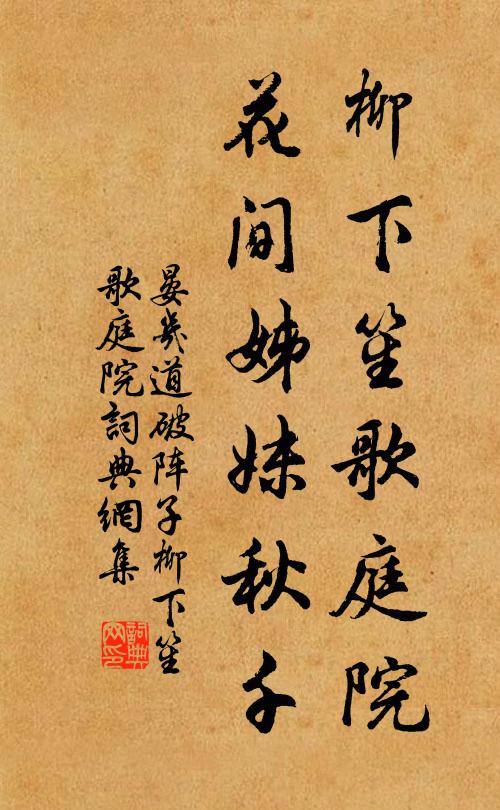 柳下笙歌庭院
花间姊妹秋千
晏幾道破阵子柳下笙
歌庭院詞典網集
詞典
网印